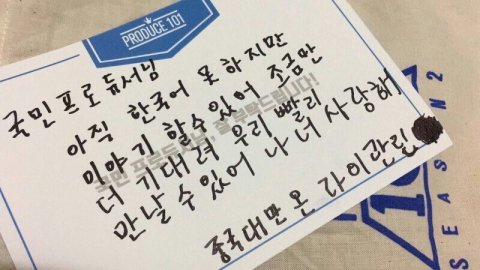 PRODUCE 101
국민 프로듀서님
아직 한국어 못 하지만
이야기 할수있어 조금만
더 기대려 우리 빨리
만날수있어 나 너 사랑해
중국대만 온 라이관린
국민 프로듀서님, 잘 부탁드립니다!
SEASON2